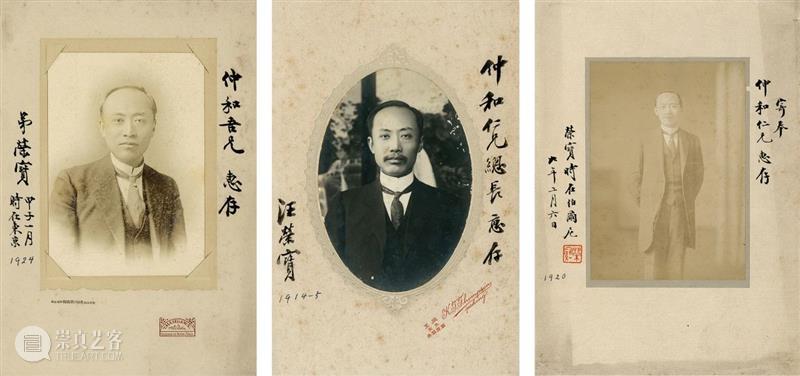 仲和吾兄 惠存
弟榮寶
甲子一月
時在東京
1924
仲和仁兄總長 惠存
汪榮寶
1914-5
寄奉
仲和仁兄 惠存
榮寶時在伯爾尼
九年二月六日
1920
崇真艺客
TRUEART.COM